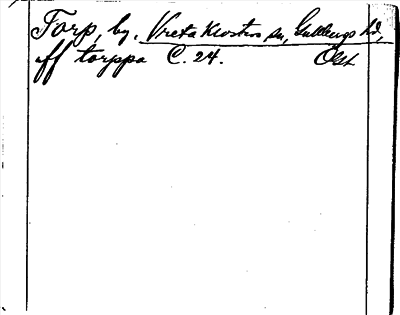 Torp, by. Vreta Klosters sn, Gullbergs hd,
iff torppa C. 24. Östl